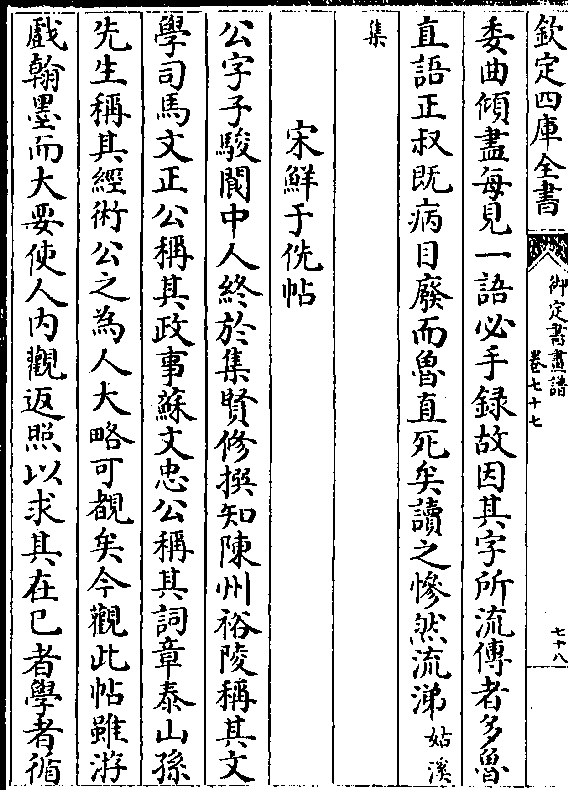 欽定四庫全書
御定書畫譜
卷七十七
七十八
委曲傾盡每見一語必手録故因其字所流傳者多魯
直語正叔既病目廢而魯直死矣讀之慘然流涕姑溪
集
宋鮮于侁帖
公字子駿閬中人終於集賢修撰知陳州裕陵稱其文
學司馬文正公稱其政事蘇文忠公稱其詞章泰山孫
先生稱其經術公之為人大略可覩矣今觀此帖雖游
戲翰墨而大要使人内觀返照以求其在已者學者循